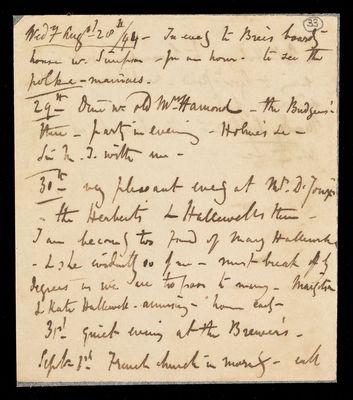 33
Wedy Augst 28th/44 - In eveng to Brees board-
house w. Simpson - for an hour - to see the
polka - mazurkas.
29th Dine wt. old Mrs Hamond - the Budgens
there - party in evening - Holmes &c -
Sir N. T. with me -
30th - very pleasant eveng at Mrs. D. Jones
- the Herberts & Hallewells there -
I am becomg too fond of Mary Hallewell
- & she evidently so of me - must break off by
degrees as we are too poor to marry -
& Kate Hallewell - amusing - home early -
31st quiet evening at the Brewers -
Septr 1st French church in morng - call